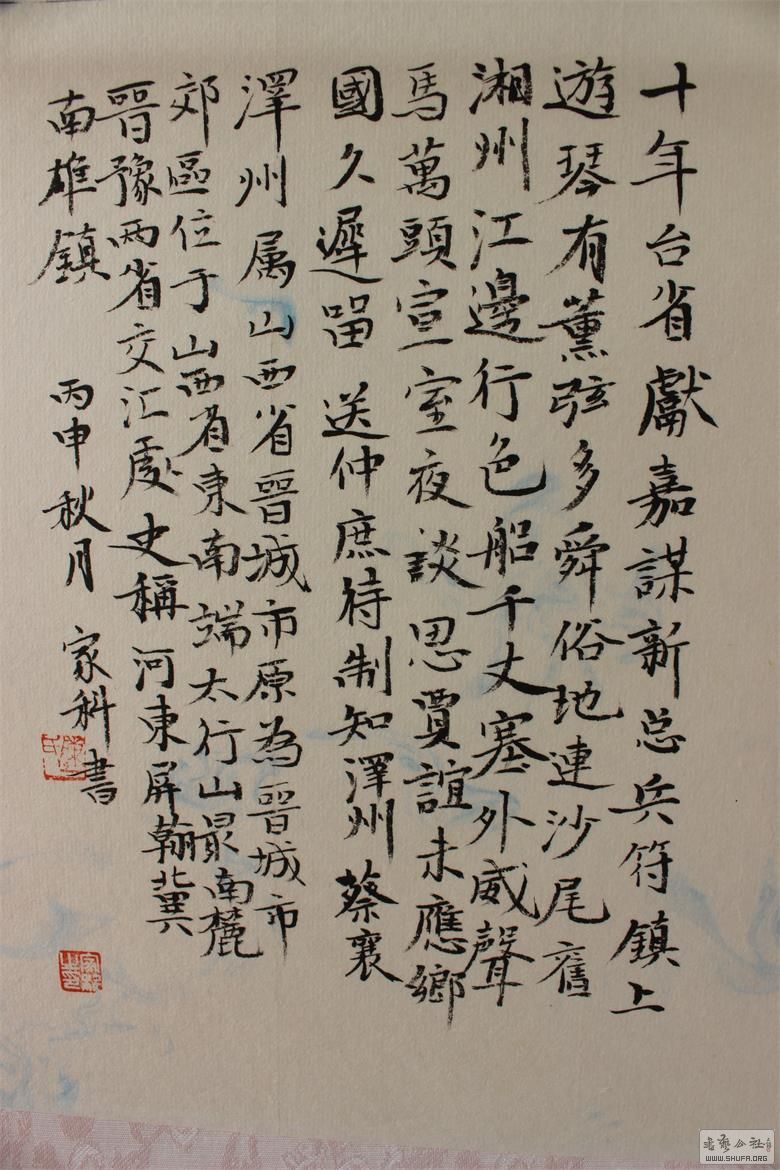 十年台省獻嘉謀新总兵符鎮上
遊琴有薰弦多舜俗地連沙尾舊
湘州江邊行色船千丈塞外威聲
馬萬頭宣室夜談思賈誼未應鄉
國久遲畱 送仲庶待制知澤州 蔡襄
澤州属山西省晉城市原為晉城市
郊區位于山西省東南端太行山最南麓
晉豫兩省交汇處史稱河東屏翰冀
南雄鎮
丙申秋月 家科書
書艺公社
WWW.SHUFA.ORG